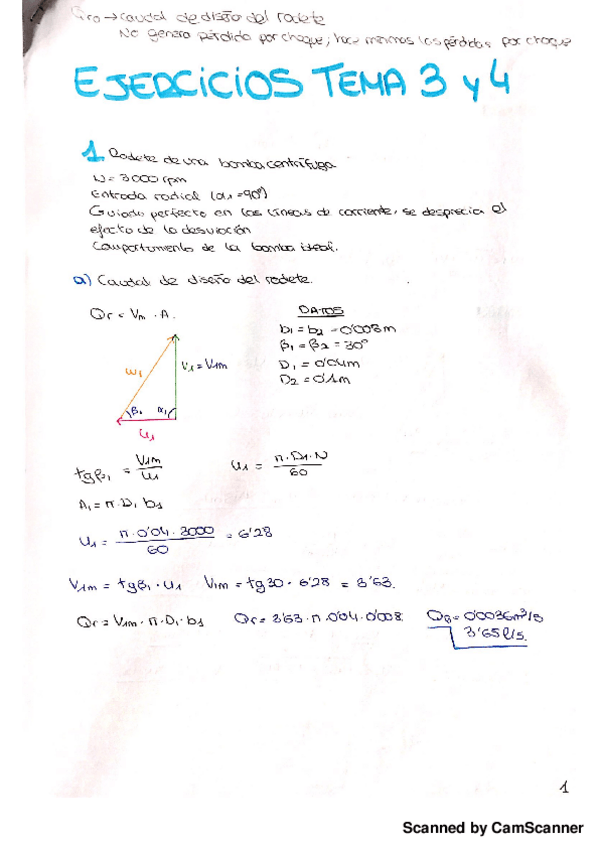 Qro → caudal de diseño del rodete
No genera pérdida por choque; hace mínimas las pérdidas por choque
EJERCICIOS TEMA 3 y 4
1 Rodete de una bomba centrífuga
N = 3000 rpm
Entrada radial (α1 = 90°)
Guiado perfecto en las líneas de corriente, se desprecia el
efecto de la desviación
Comportamiento de la bomba ideal.
a) Caudal de diseño del rodete.
Qr = Vm · A.
DATOS
b1 = b2 = 0'008m
β1 = β2 = 30°
D1 = 0'04m
D2 = 0'1m
w1
V1 = V1m
β1
α1
u1
tgβ1 = V1m / u1
u1 = π · D1 · N / 60
A1 = π · D1 · b1
u1 = π · 0'04 · 3000 / 60 = 6'28
V1m = tgβ1 · u1 V1m = tg30 · 6'28 = 3'63.
Qr = V1m · π · D1 · b1 Qr = 3'63 · π · 0'04 · 0'008 QR = 0'0036m³/s
3'65 l/s.
1
Scanned by CamScanner